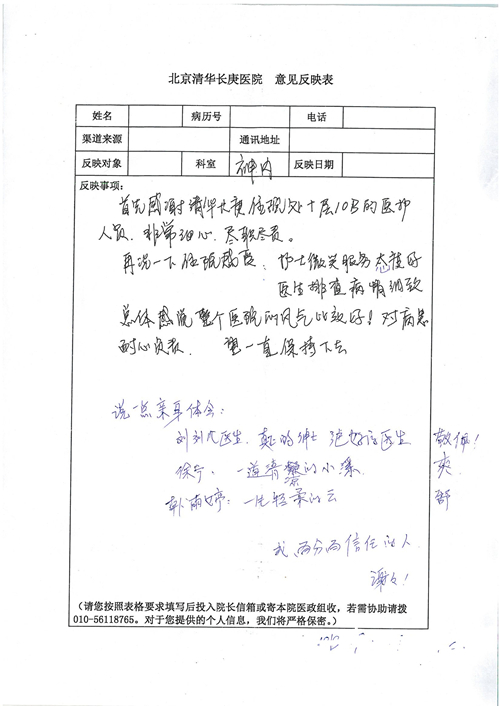 北京清华长庚医院 意见反映表
姓名 病历号 电话
渠道来源 通讯地址
反映对象 科室 神内 反映日期
反映事项：
首先感谢清华长庚住院处十层10B的医护
人员、非常细心、尽职尽责。
再说一下住院感受：护士微笑服务态度好
医生排查病情细致
总体感觉整个医院的风气比较好！对病患
耐心负责、望一直保持下去
说一点亲身体会：
医生、真的绅士 绝好的医生 敬佩！
徐宁、一道清 的小溪 爽
雨婷：一片轻柔的云 舒
我 信任的人
谢谢！
（请您按照表格要求填写后投入院长信箱或寄本院医政组收，若需协助请拨
010-56118765。对于您提供的个人信息，我们将严格保密。）